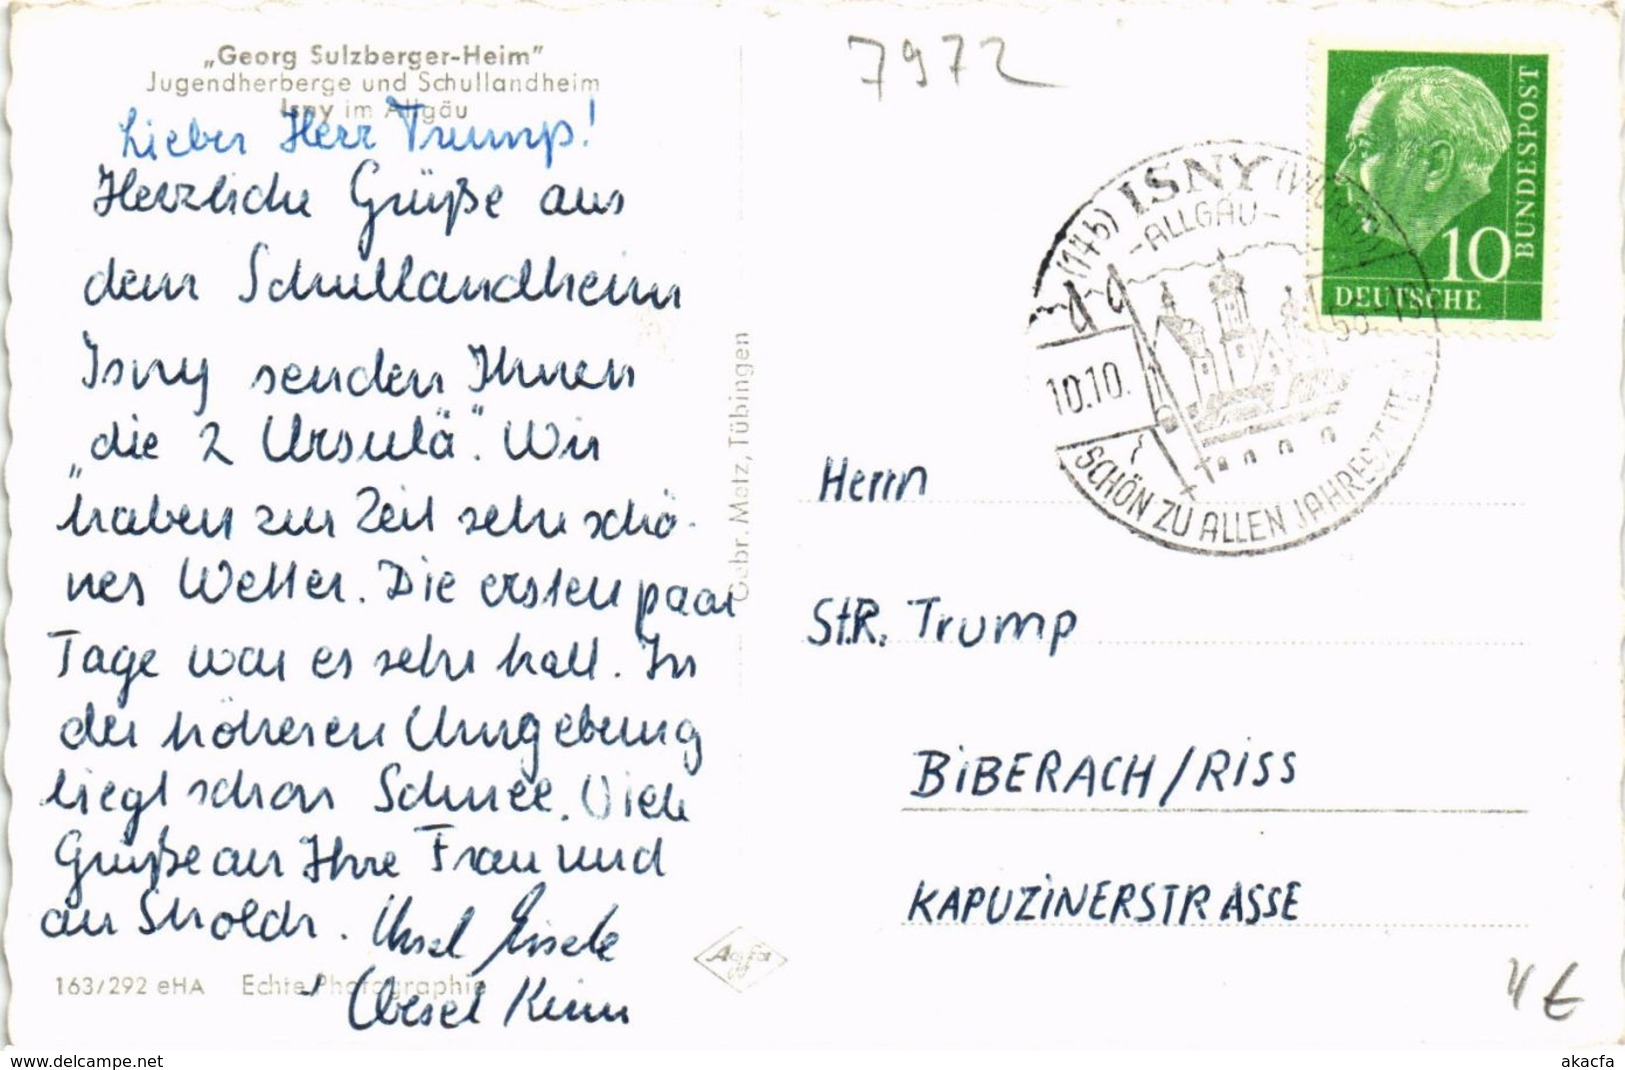 „Georg Sulzberger-Heim"
Jugendherberge und Schullandheim
Isny im Allgäu
Lieber Herr Trump!
Herzliche Grüße aus
dem Schullandheim
Isny senden Ihnen
„die 2 Ursulä". Wir
haben zur Zeit sehr schö-
nes Wetter. Die ersten paar
Tage war es sehr kalt. In
der höheren Umgebung
liegt schon Schnee. Viele
Grüße an Ihre Frau und
an Strolch. Ursel Eisele
+ Ursel
163/292 eHA Echte Photographie
Gebr. Metz, Tübingen
Agfa
7972
DEUTSCHE BUNDESPOST
10
(14b) ISNY (WÜRTT)
-ALLGÄU-
10.10.
58-18
SCHÖN ZU ALLEN JAHRESZEITEN
Herrn
St.R. Trump
BIBERACH/RISS
KAPUZINERSTRASSE
4 €
www.delcampe.net
akacfa